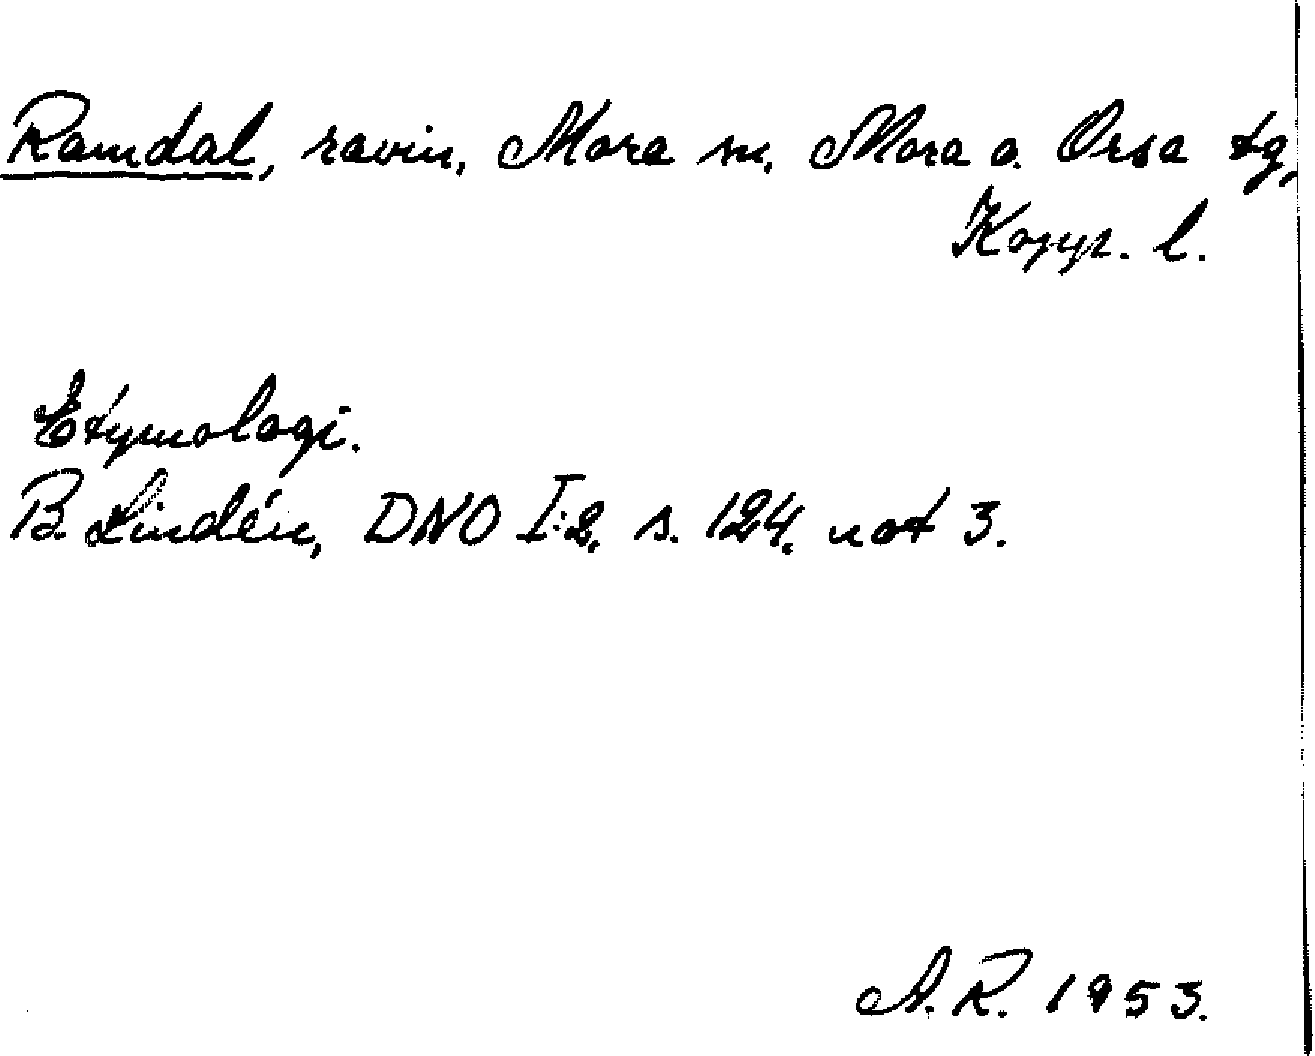 Ramdal, ravin, Mora sn, Mora o. Orsa tg,
Kopp. l.
Etymologi.
B. Lindén, DNO I:2, s. 124, not 3.
A. R. 1953.